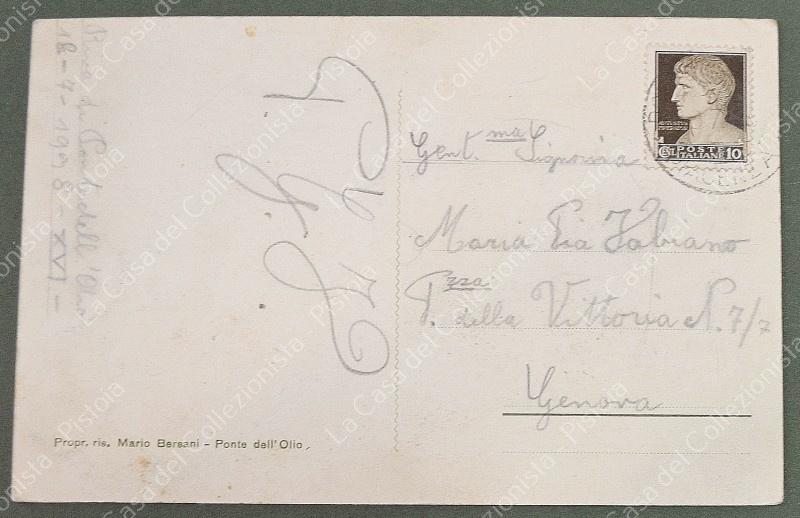 Riva di Ponte dell'Olio
18-7-1938-XVI-
Gent.ma Signorina
Maria Pia Fabiano
P.zza della Vittoria N. 7/7
Genova
CENT. POSTE ITALIANE 10
Propr. ris. Mario Bersani - Ponte dell'Olio.
La Casa del Collezionista Pistoia